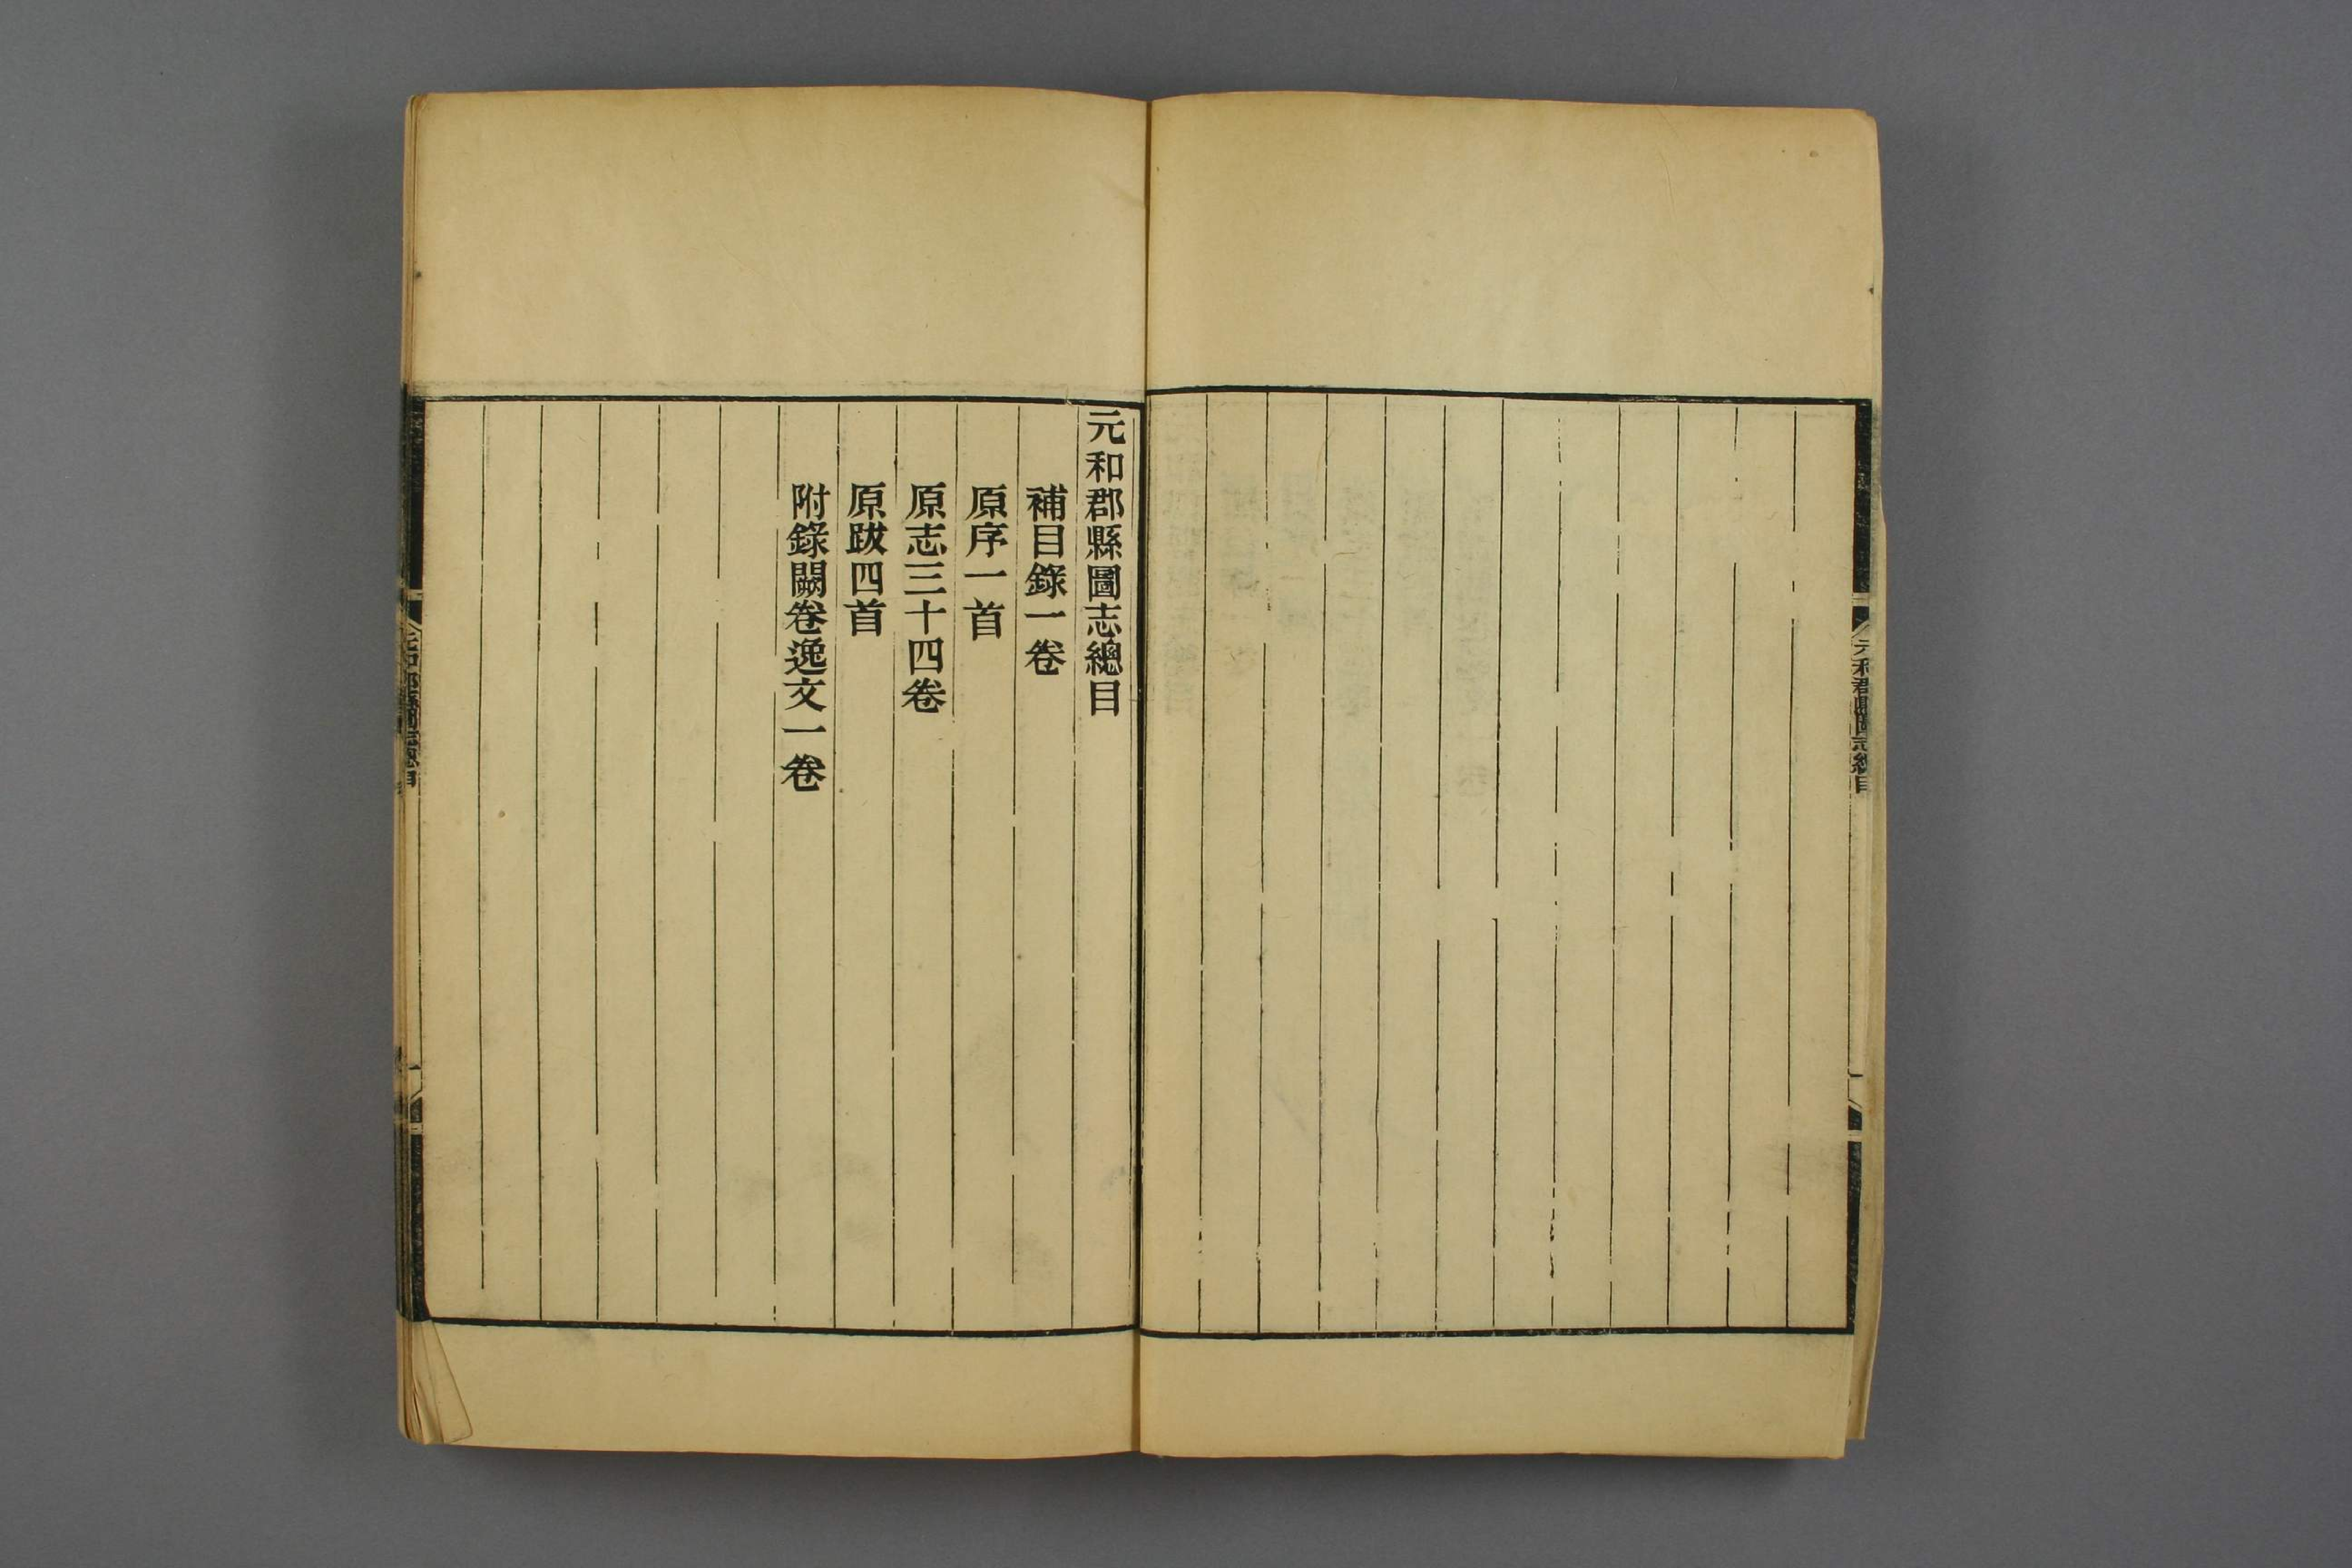 元和郡縣圖志總目
補目錄一卷
原序一首
原志三十四卷
原跋四首
附錄闕卷逸文一卷
元和郡縣圖志總目
一
元和郡縣圖志總目
一